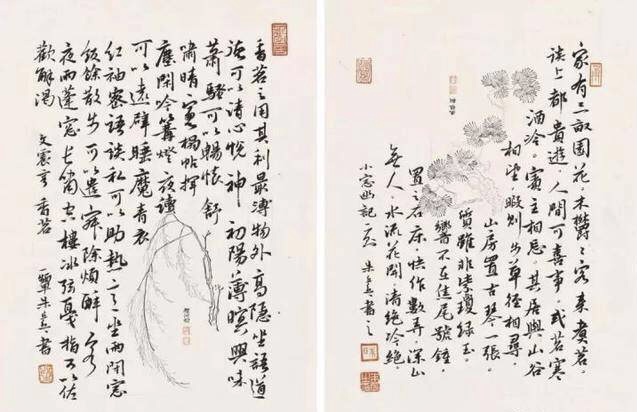 香茗之用其利最溥物外高隱坐語道
德可以清心悅神初陽薄暝興味
蕭騷可以暢懷舒
嘯晴窗榻帖揮
麈閑吟篝燈夜讀
可以遠辟睡魔青衣
紅袖密語談私可以助熱意坐雨閉窗
飯餘散步可以遣寂除煩醉客
夜雨蓬窗長嘯空樓冰弦戛指可以佐
歡解渴
文震亨 香茗
家有三畝園花木鬱鬱客來煮茗
談上都貴遊人間可喜事或茗寒
酒冷賓主相忘其居與山谷
相望暇則步草徑相尋
山房置古琴一張
質雖非紫瓊綠玉
響不在焦尾號鍾
置之石床快作數弄深山
無人水流花開清絕冷絕
小窗幽記二則 朱真書之